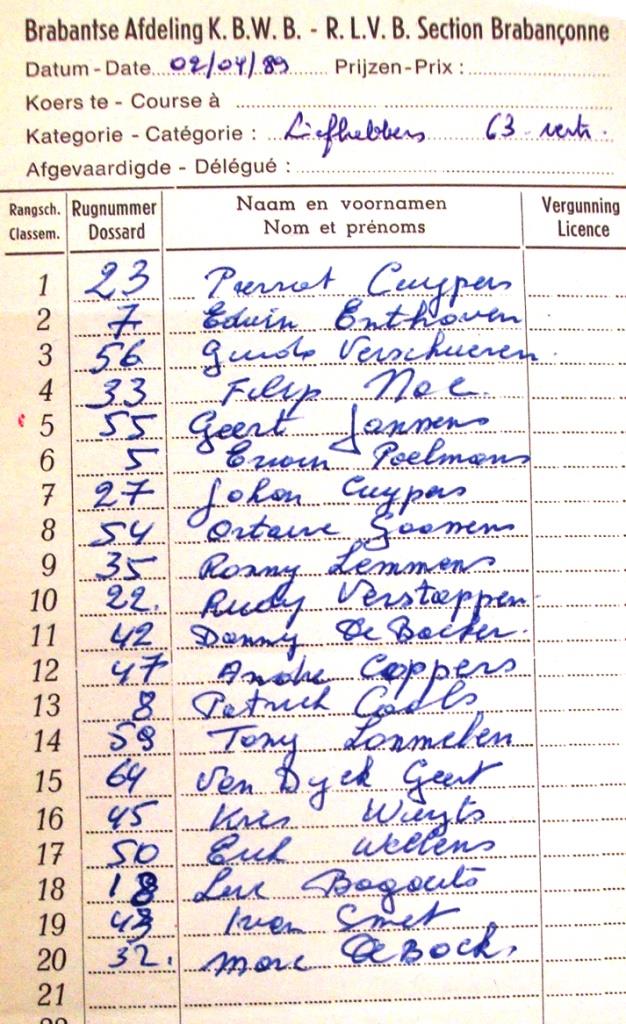 Brabantse Afdeling K. B. W. B. - R. L. V. B. Section Brabançonne
Datum - Date 02/04/89 Prijzen - Prix :
Koers te - Course à
Kategorie - Catégorie : Liefhebbers 63 vertr.
Afgevaardigde - Délégué :
Rangsch. Rugnummer Naam en voornamen Vergunning
Classem. Dossard Nom et prénoms Licence
1 23 Pierrot Cuypers
2 7 Edwin Enthoven
3 56 Guido Verschueren
4 33 Filip Noe
5 55 Geert Janssens
6 5 Erwin Poelmans
7 27 Johan Cuypers
8 54 Octave Goossens
9 35 Ronny Lemmens
10 22. Rudy Verstappen
11 42 Danny De Backer
12 47 André Coppers
13 8 Patrick Cools
14 59 Tony
15 64 Van Dyck Geert
16 45 Kris Wuyts
17 50 Erik Wellens
18 18 Luc Bogaerts
19 43 Ivan Smet
20 32. Marc De Bock.
21